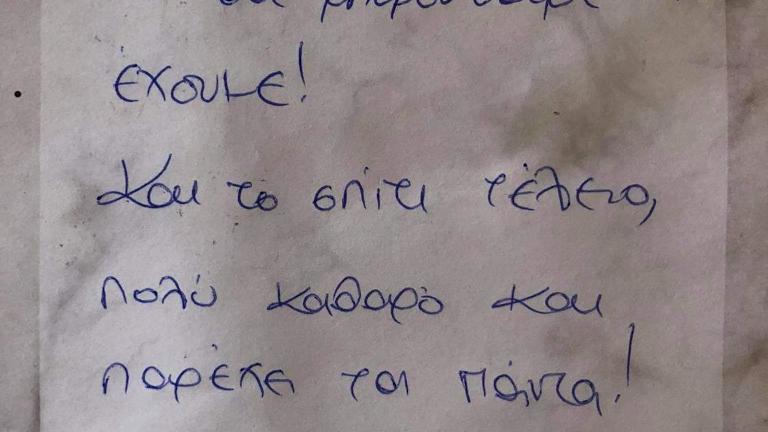 έχουμε!
Και το σπίτι τέλειο,
πολύ καθαρό και
παρέχει τα πάντα!